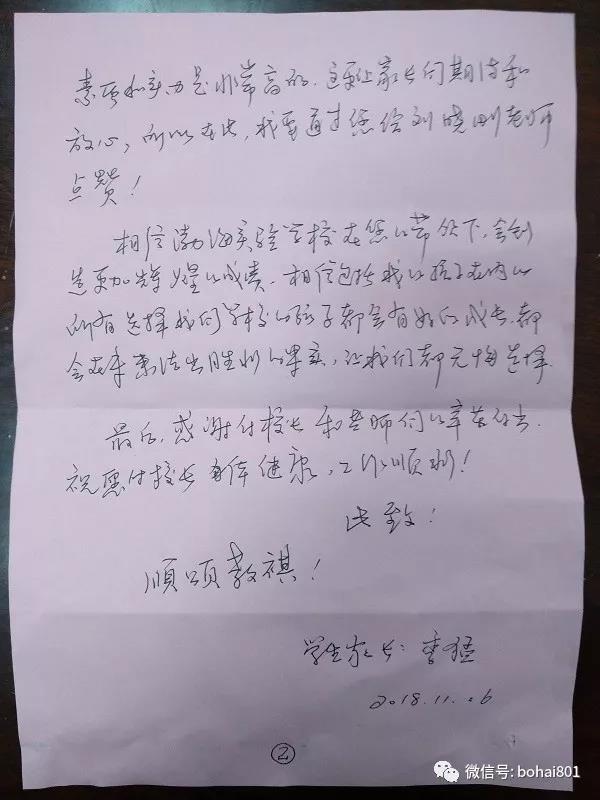 素质和实力是非常高的，这更让家长们期待和
放心，所以在此，我要通过您给刘晓刚老师
点赞！
相信渤海实验学校在您的带领下，会创
造更加辉煌的成绩。相信包括我的孩子在内的
所有选择我们学校的孩子都会有好的成长，都
会在未来结出胜利的果实，让我们都无悔选择。
最后，感谢付校长和老师们的辛苦付出。
祝愿付校长身体健康，工作顺利！
此致！
顺颂教祺！
学生家长：李猛
2018.11.06
②
微信号: bohai801